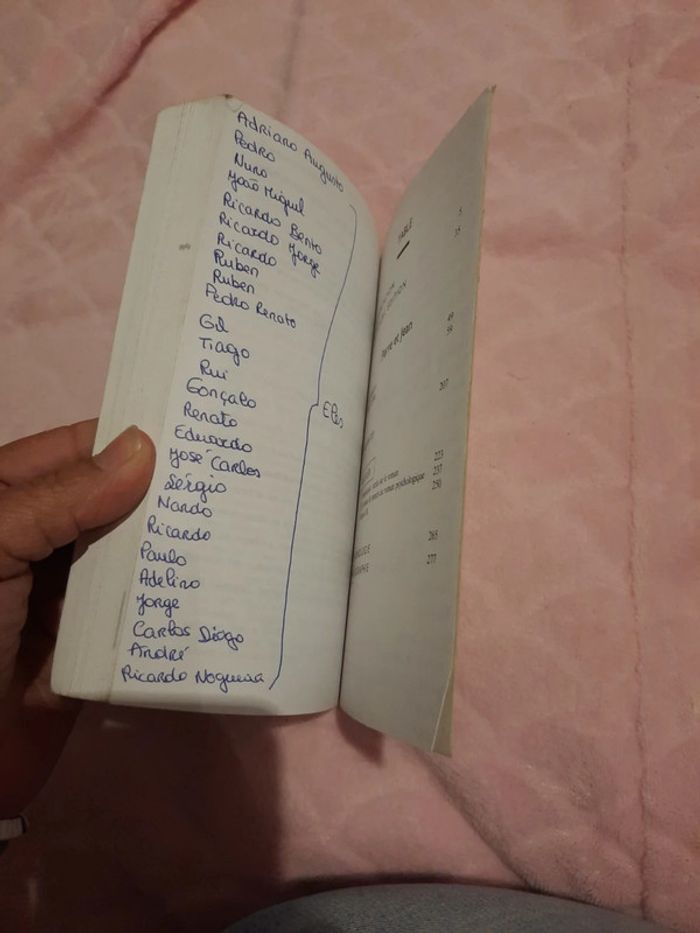 Adriano Augusto
Pedro
Nuno
João Miguel
Ricardo Bento
Ricardo Jorge
Ricardo
Ruben
Ruben
Pedro Renato
Gil
Tiago
Rui
Gonçalo
Renato
Eduardo
José Carlos
Sérgio
Nando
Ricardo
Paulo
Adelino
Jorge
Carlos Diogo
André
Ricardo Nogueira
Eles
TABLE
5
35
49
Pierre et Jean 59
207
223
237
roman psychologique 250
265
277